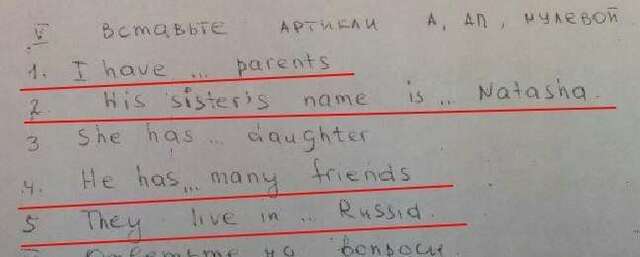 V Вставьте артикли a, an, нулевой
1. I have ... parents
2. His sister's name is ... Natasha.
3 She has ... daughter
4. He has ... many friends
5 They live in ... Russia.
на вопросы.